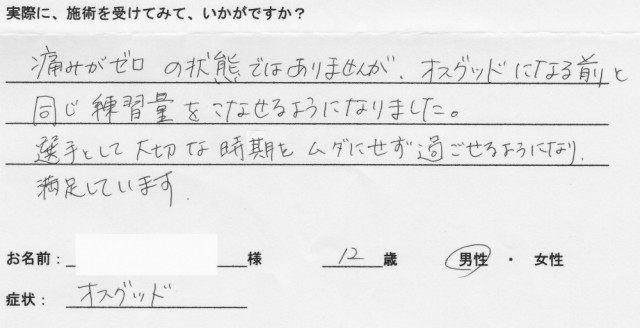 実際に、施術を受けてみて、いかがですか？
痛みがゼロの状態ではありませんが、オスグッドになる前と
同じ練習量をこなせるようになりました。
選手として大切な時期をムダにせず過ごせるようになり、
満足しています。
お名前： 様 12 歳 男性 ・ 女性
症状： オスグッド